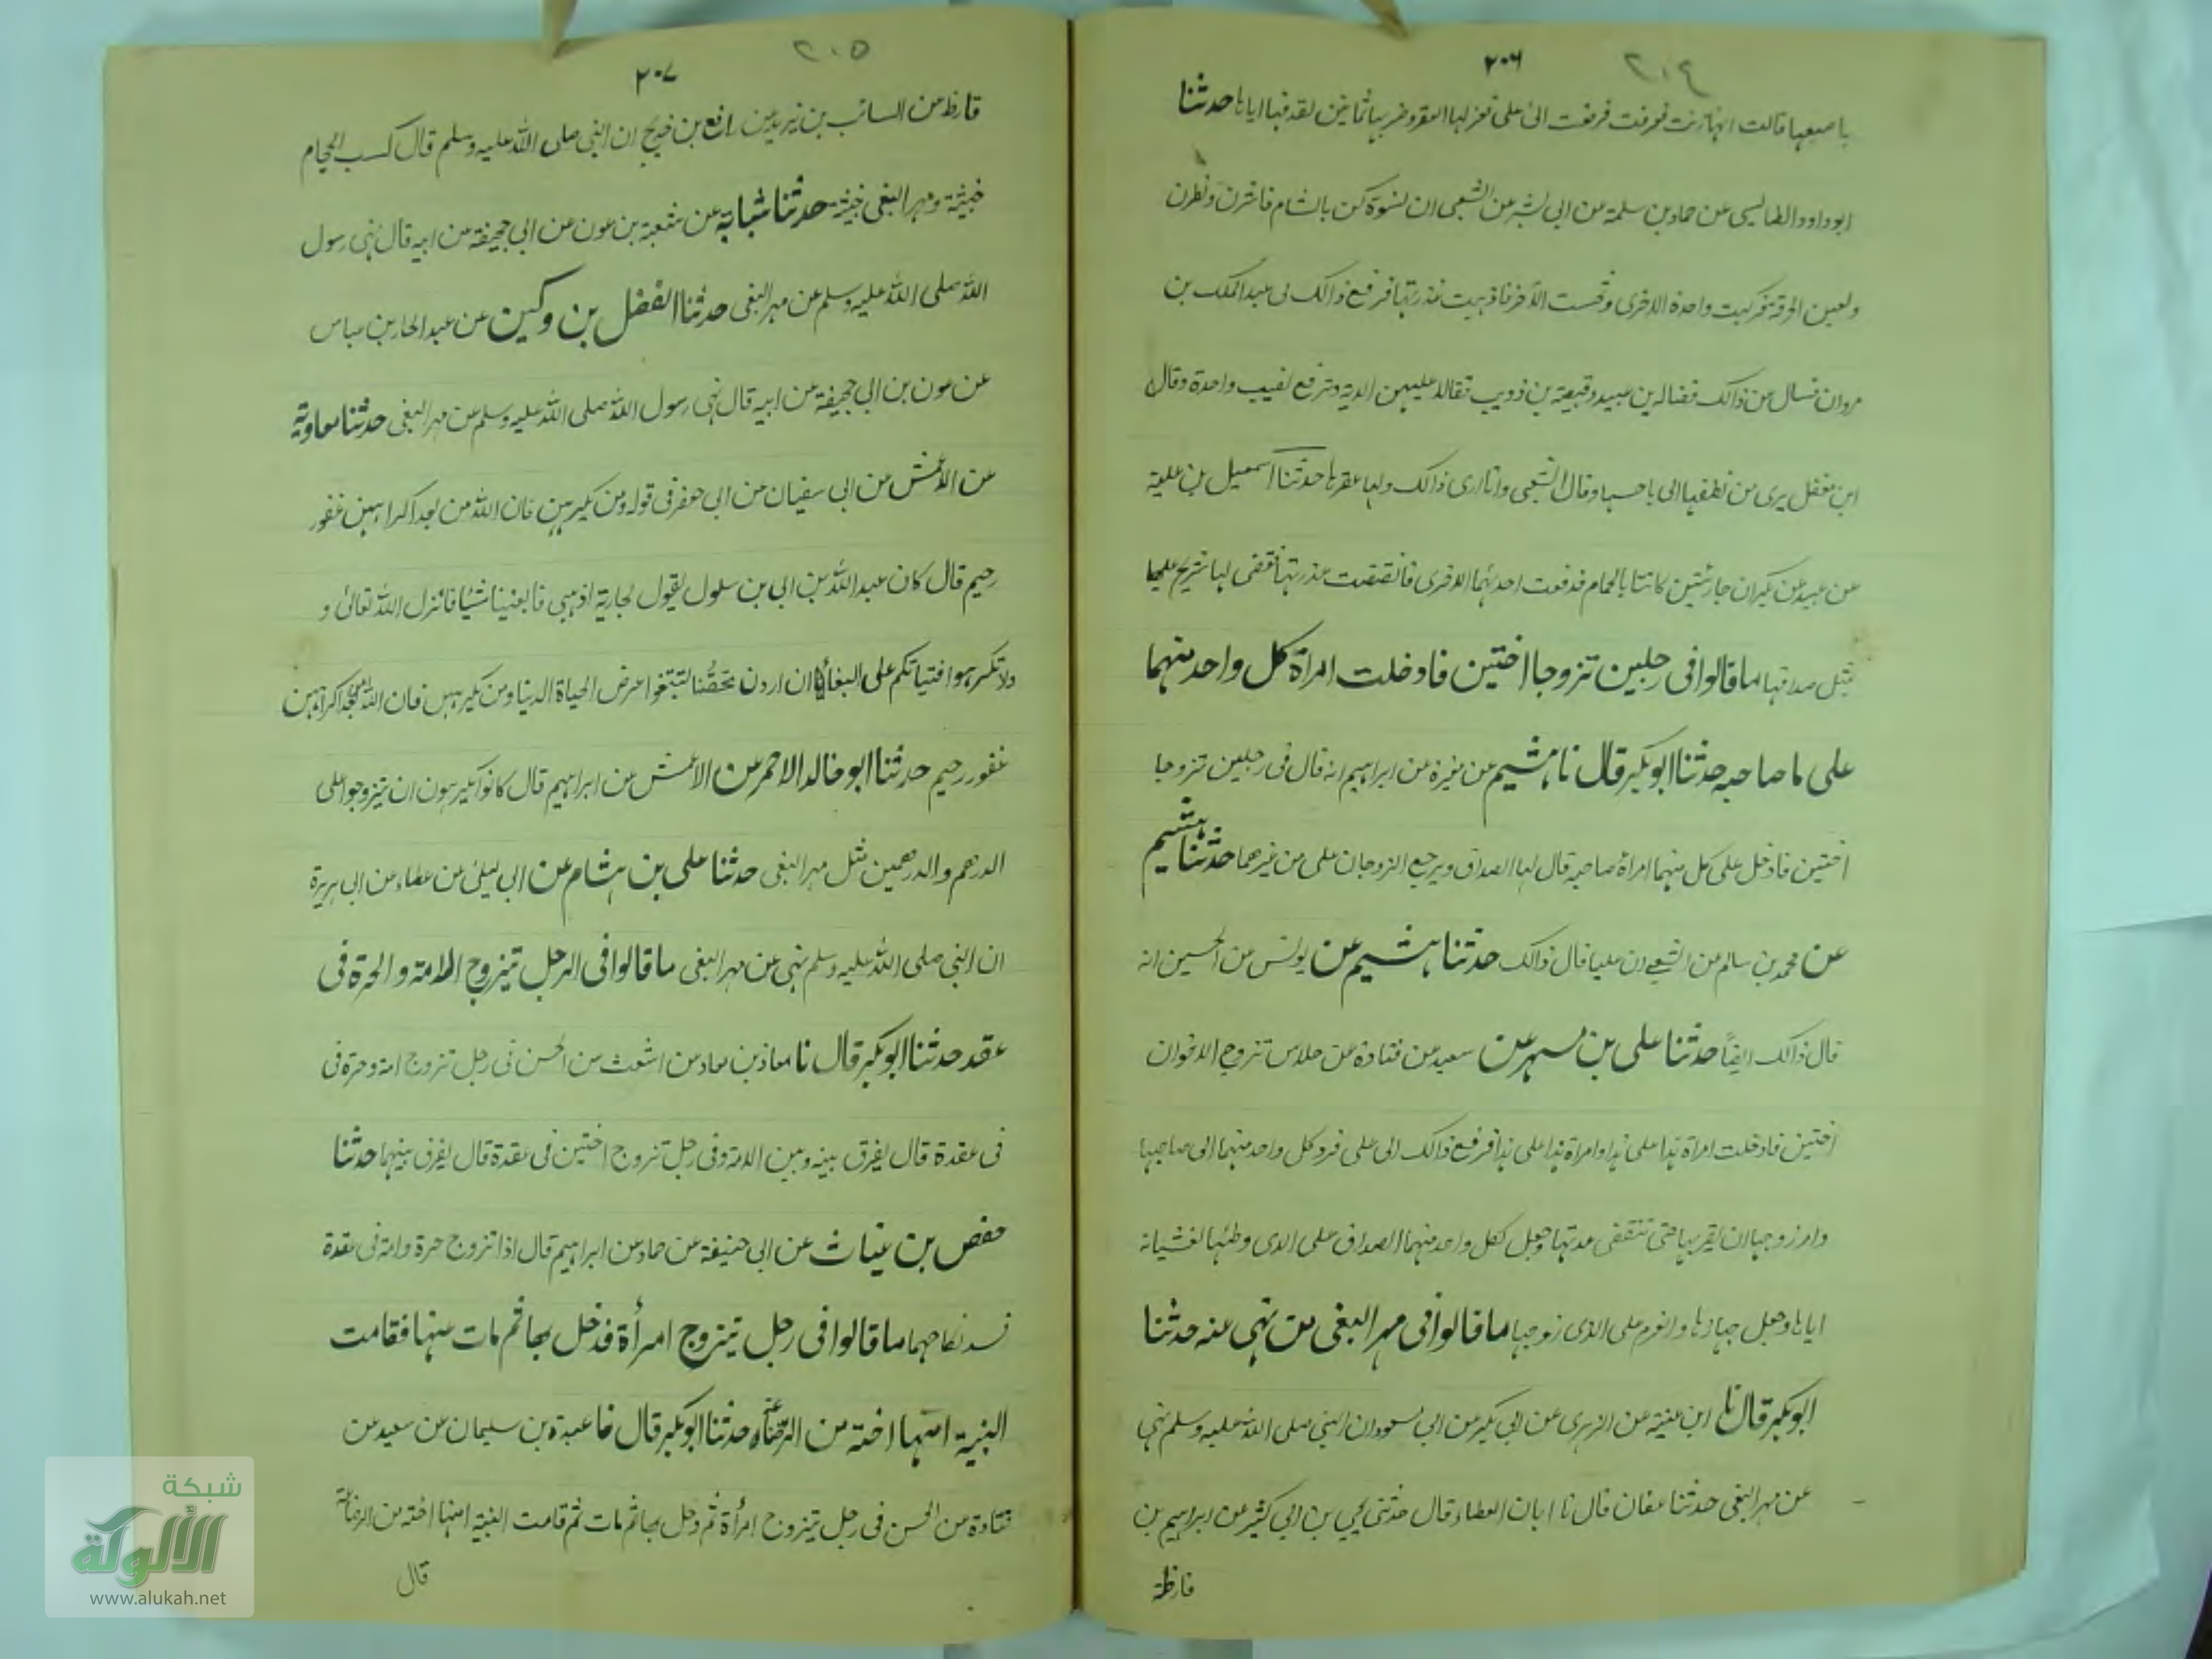 ٢٠٤
٢٠٦
باصبعها قالت انها زنت فرفعت الى على فغرمها العقر وضربها ثمانين لقذفها اياها حدثنا
ابو داود الطيالسى عن حماد بن سلمة عن ابى بشر عن الشعبى ان نسوة كن بالشام فاشرن وبطرن
ولعبن الحزقة فركبت واحدة الاخرى ونخست الاخرى فاذهبت عذرتها فرفع ذالك الى عبد الملك بن
مروان فسال عن ذالك فضاله بن عبيد وقبيصة بن ذويب فقالا عليهن الدية وترفع نصيب واحدة وقال
ابن معقل يرى من نطفها الى وقال الشعبى وانا ارى ذالك ولها عقرها حدثنا اسمعيل بن علية
عن عبيد عن بكر ان جاريتين كانتا بالحمام فدفعت احدىهما الاخرى فانقضت عذرتها فقضى لها شريح عليها
مثل صداقها ما قالوا فى رجلين تزوجا اختين فادخلت امراة كل واحد منهما
على ما صاحبه حدثنا ابو بكر قال نا هشيم عن مغيرة عن ابراهيم انه قال فى رجلين تزوجا
اختين فادخل على كل منهما امراة صاحبه قال لها الصداق ويرجع الزوجان على من غيرهما حدثنا هشيم
عن محمد بن سالم عن الشعبى ان عليا قال ذالك حدثنا هشيم عن يونس عن الحسين انه
قال ذالك ايضًا حدثنا على بن مسهر عن سعيد عن قتادة عن خلاس تزوج الاخوان
اختين فادخلت امراة هذا على هذا وامراة هذا على هذا فرفع ذالك الى على فرد كل واحد منهما الى صاحبها
وامر زوجها ان لا يقربها حتى تنقضى عدتها وجعل لكل واحد منهما الصداق على الذى وطئها لغشيانه
اياها وجعل جهازها والغرم على الذى زوجها ما قالوا فى مهر البغى من نهى عنه حدثنا
ابو بكر قال نا ابن عيينة عن الزهرى عن ابى بكر عن ابى مسعود ان النبى صلى الله عليه وسلم نهى
عن مهر البغى حدثنا عفان قال نا ابان العطار قال حدثنى يحيى بن ابى كثير عن ابراهيم بن
قارظ
٢٠٥
٢٠٧
قارظ عن السائب بن يزيد عن رافع بن خديج ان النبى صلى الله عليه وسلم قال كسب الحجام
خبيثة ومهر البغى خبيثة حدثنا شبابة عن شعبة بن عون عن ابى جحيفة عن ابيه قال نهى رسول
الله صلى الله عليه وسلم عن مهر البغى حدثنا الفضل بن وكين عن عبد الجبار بن عباس
عن عون بن ابى جحيفة عن ابيه قال نهى رسول الله صلى الله عليه وسلم عن مهر البغى حدثنا معاوية
عن الاعمش عن ابى سفيان عن ابى جعفر فى قوله ومن يكرههن فان الله من بعد اكراههن غفور
رحيم قال كان عبد الله بن ابى بن سلول يقول لجارية اذهبى فابغينا شيئا فانزل الله تعالى و
ولا تكرهوا فتياتكم على البغاء ان اردن تحصّنا لتبتغوا عرض الحياة الدنيا ومن يكرههن فان الله من بعد اكراههن
غفور رحيم حدثنا ابو خالد الاحمر عن الاعمش عن ابراهيم قال كانوا يكرهون ان يتزوجوا على
الدرهم والدرهمين مثل مهر البغى حدثنا على بن هشام عن ابى ليلى عن عطاء عن ابى هريرة
ان النبى صلى الله عليه وسلم نهى عن مهر البغى ما قالوا فى الرجل يتزوج الامة والحرة فى
عقد حدثنا ابو بكر قال نا معاذ بن معاذ عن اشعث عن الحسن فى رجل تزوج امة وحرة فى
فى عقدة قال يفرق بينه وبين الامة وفى رجل تزوج اختين فى عقدة قال يفرق بينهما حدثنا
حفص بن غياث عن ابى حنيفة عن حماد عن ابراهيم قال اذا تزوج حرة وامة فى عقدة
فسد نكاحهما ما قالوا فى رجل يتزوج امرأة فدخل بها ثم مات عنها فقامت
البنية انها اخته من الرضاعة حدثنا ابو بكر قال نا عبدة بن سليمان عن سعيد عن
قتادة عن الحسن فى رجل يتزوج امرأة ثم دخل بها ثم مات ثم قامت البنية انها اخته من الرضاعة
قال
شبكة
الألوكة
www.alukah.net